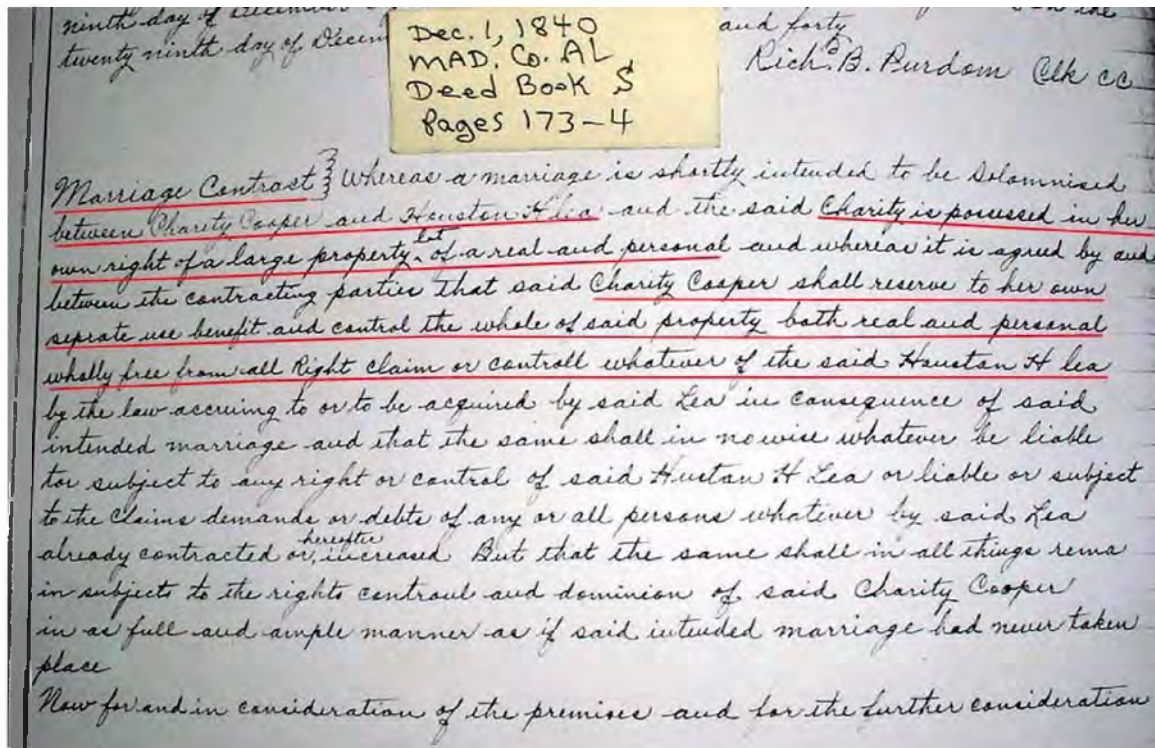 ninth day of December
twenty ninth day of Decem and forty
Richd. B. Purdom Clk CC
Dec. 1, 1840
MAD. Co. AL
Deed Book S
Pages 173-4
Marriage Contract } Whereas a marriage is shortly intended to be Solamnised
between Charity Cooper and Houston H Lea and the said Charity is possessed in her
own right of a large property, lot of a real and personal and whereas it is agreed by and
between the contracting parties that said Charity Cooper shall reserve to her own
seprate use benefit and control the whole of said property both real and personal
wholly free from all Right claim or controll whatever of the said Houston H Lea
by the law accruing to or to be acquired by said Lea in consequence of said
intended marriage and that the same shall in nowise whatever be liable
tor subject to any right or control of said Hustan H Lea or liable or subject
to the Claims demands or debts of any or all persons whatever by said Lea
already contracted or hereafter increased But that the same shall in all things rema
in subjects to the rights controul and dominion of said Charity Cooper
in as full and ample manner as if said intended marriage had never taken
place
Now for and in consideration of the premises and for the further consideration